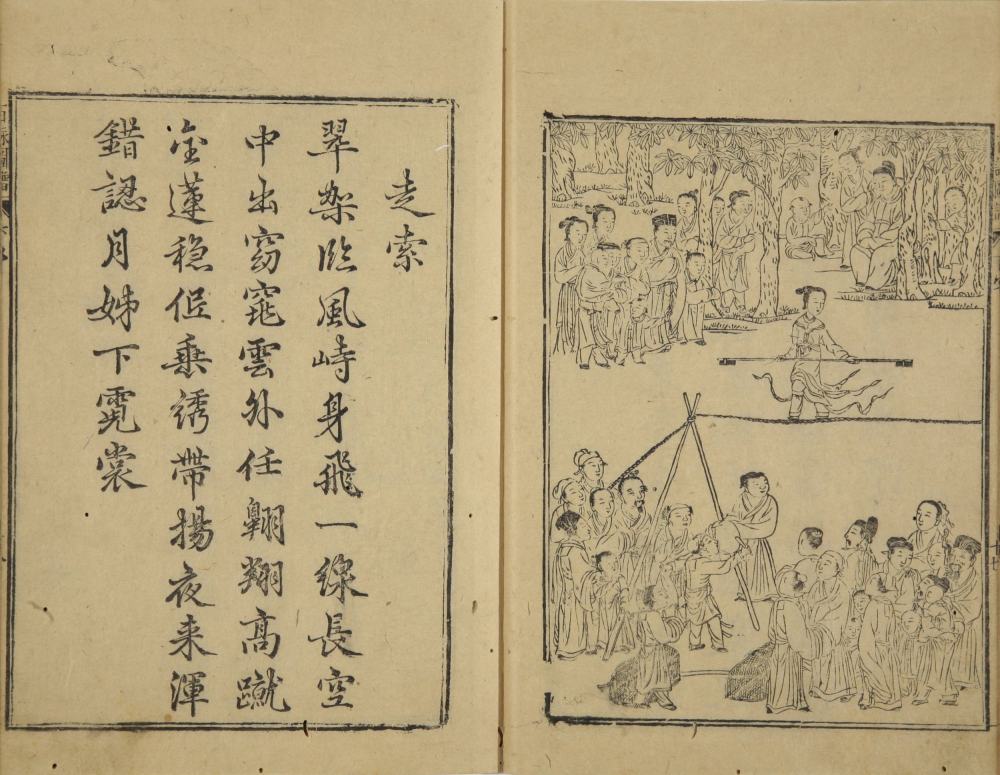 走索
翠架臨風峙身飛一線長空
中出窈窕雲外任翱翔高蹴
金蓮穩低垂綉帶揚夜来渾
錯認月姊下霓裳